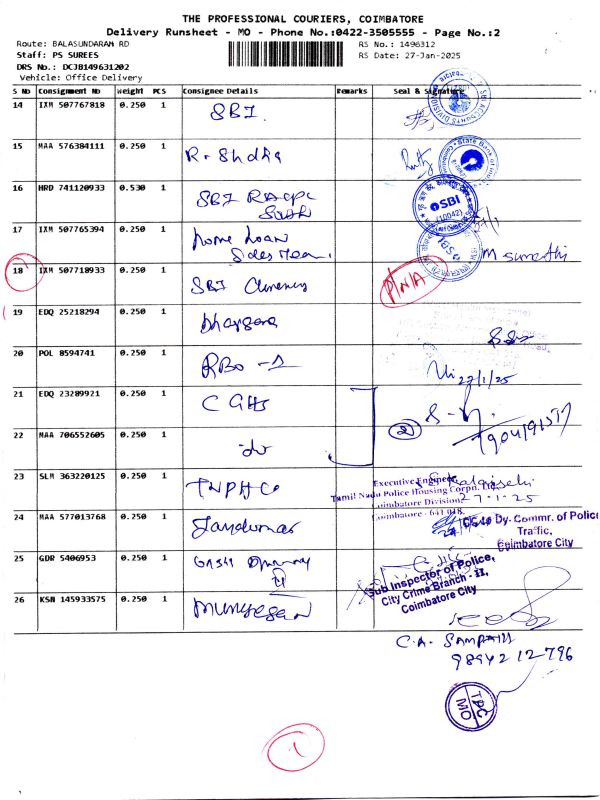 THE PROFESSIONAL COURIERS, COIMBATORE
Delivery Runsheet - MO - Phone No.:0422-3505555 - Page No.:2
Route: BALASUNDARAM RD
RS No.: 1496312
Staff: PS SUREES
RS Date: 27-Jan-2025
DRS No.: DCJB149631202
Vehicle: Office Delivery
S No Consignment No Weight PCS Consignee Details Remarks Seal & Signature
14 IXM 507767818 0.250 1 SBI
15 MAA 576384111 0.250 1 R. Shdha
16 HRD 741120933 0.530 1 SBI RACPC
SBI
(10042)
17 IXM 507765394 0.250 1 home loan
Sales team.
M Sumathi
18 IXM 507718933 0.250 1 SBI
P/N/A
19 EDQ 25218294 0.250 1
20 POL 8594741 0.250 1 RBO -1
27/1/25
21 EDQ 23289921 0.250 1 CGHS
2
22 MAA 706552605 0.250 1 do
23 SLM 363220125 0.250 1 TNPHC
Executive Engineer
Tamil Nadu Police Housing Corpn. Ltd
Coimbatore Division
Coimbatore - 641 018.
27.1.25
24 MAA 577013768 0.250 1
Dy. Commr. of Police
Traffic,
Coimbatore City
25 GDR 5406953 0.250 1
Sub Inspector of Police,
City Crime Branch - II,
Coimbatore City
26 KSN 145933575 0.250 1 Murugesan
C.A. SAMPATH
98942 12796
TPC
MO
1